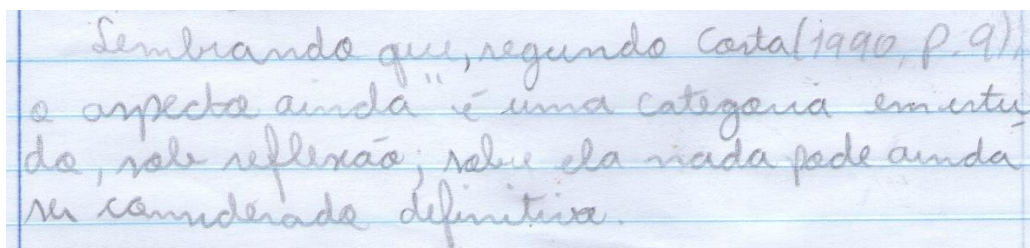 Lembrando que, segundo Costa (1990, p. 9),
o aspecto ainda "é uma categoria em estu
do, sob reflexão; sobre ela nada pode ainda
ser considerado definitivo.